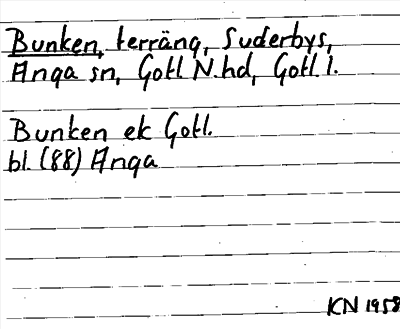 Bunken, terräng, Suderbys,
Anga sn, Gotl N. hd, Gotl. l.
Bunken ek Gotl.
bl. (88) Anga
KN 1958